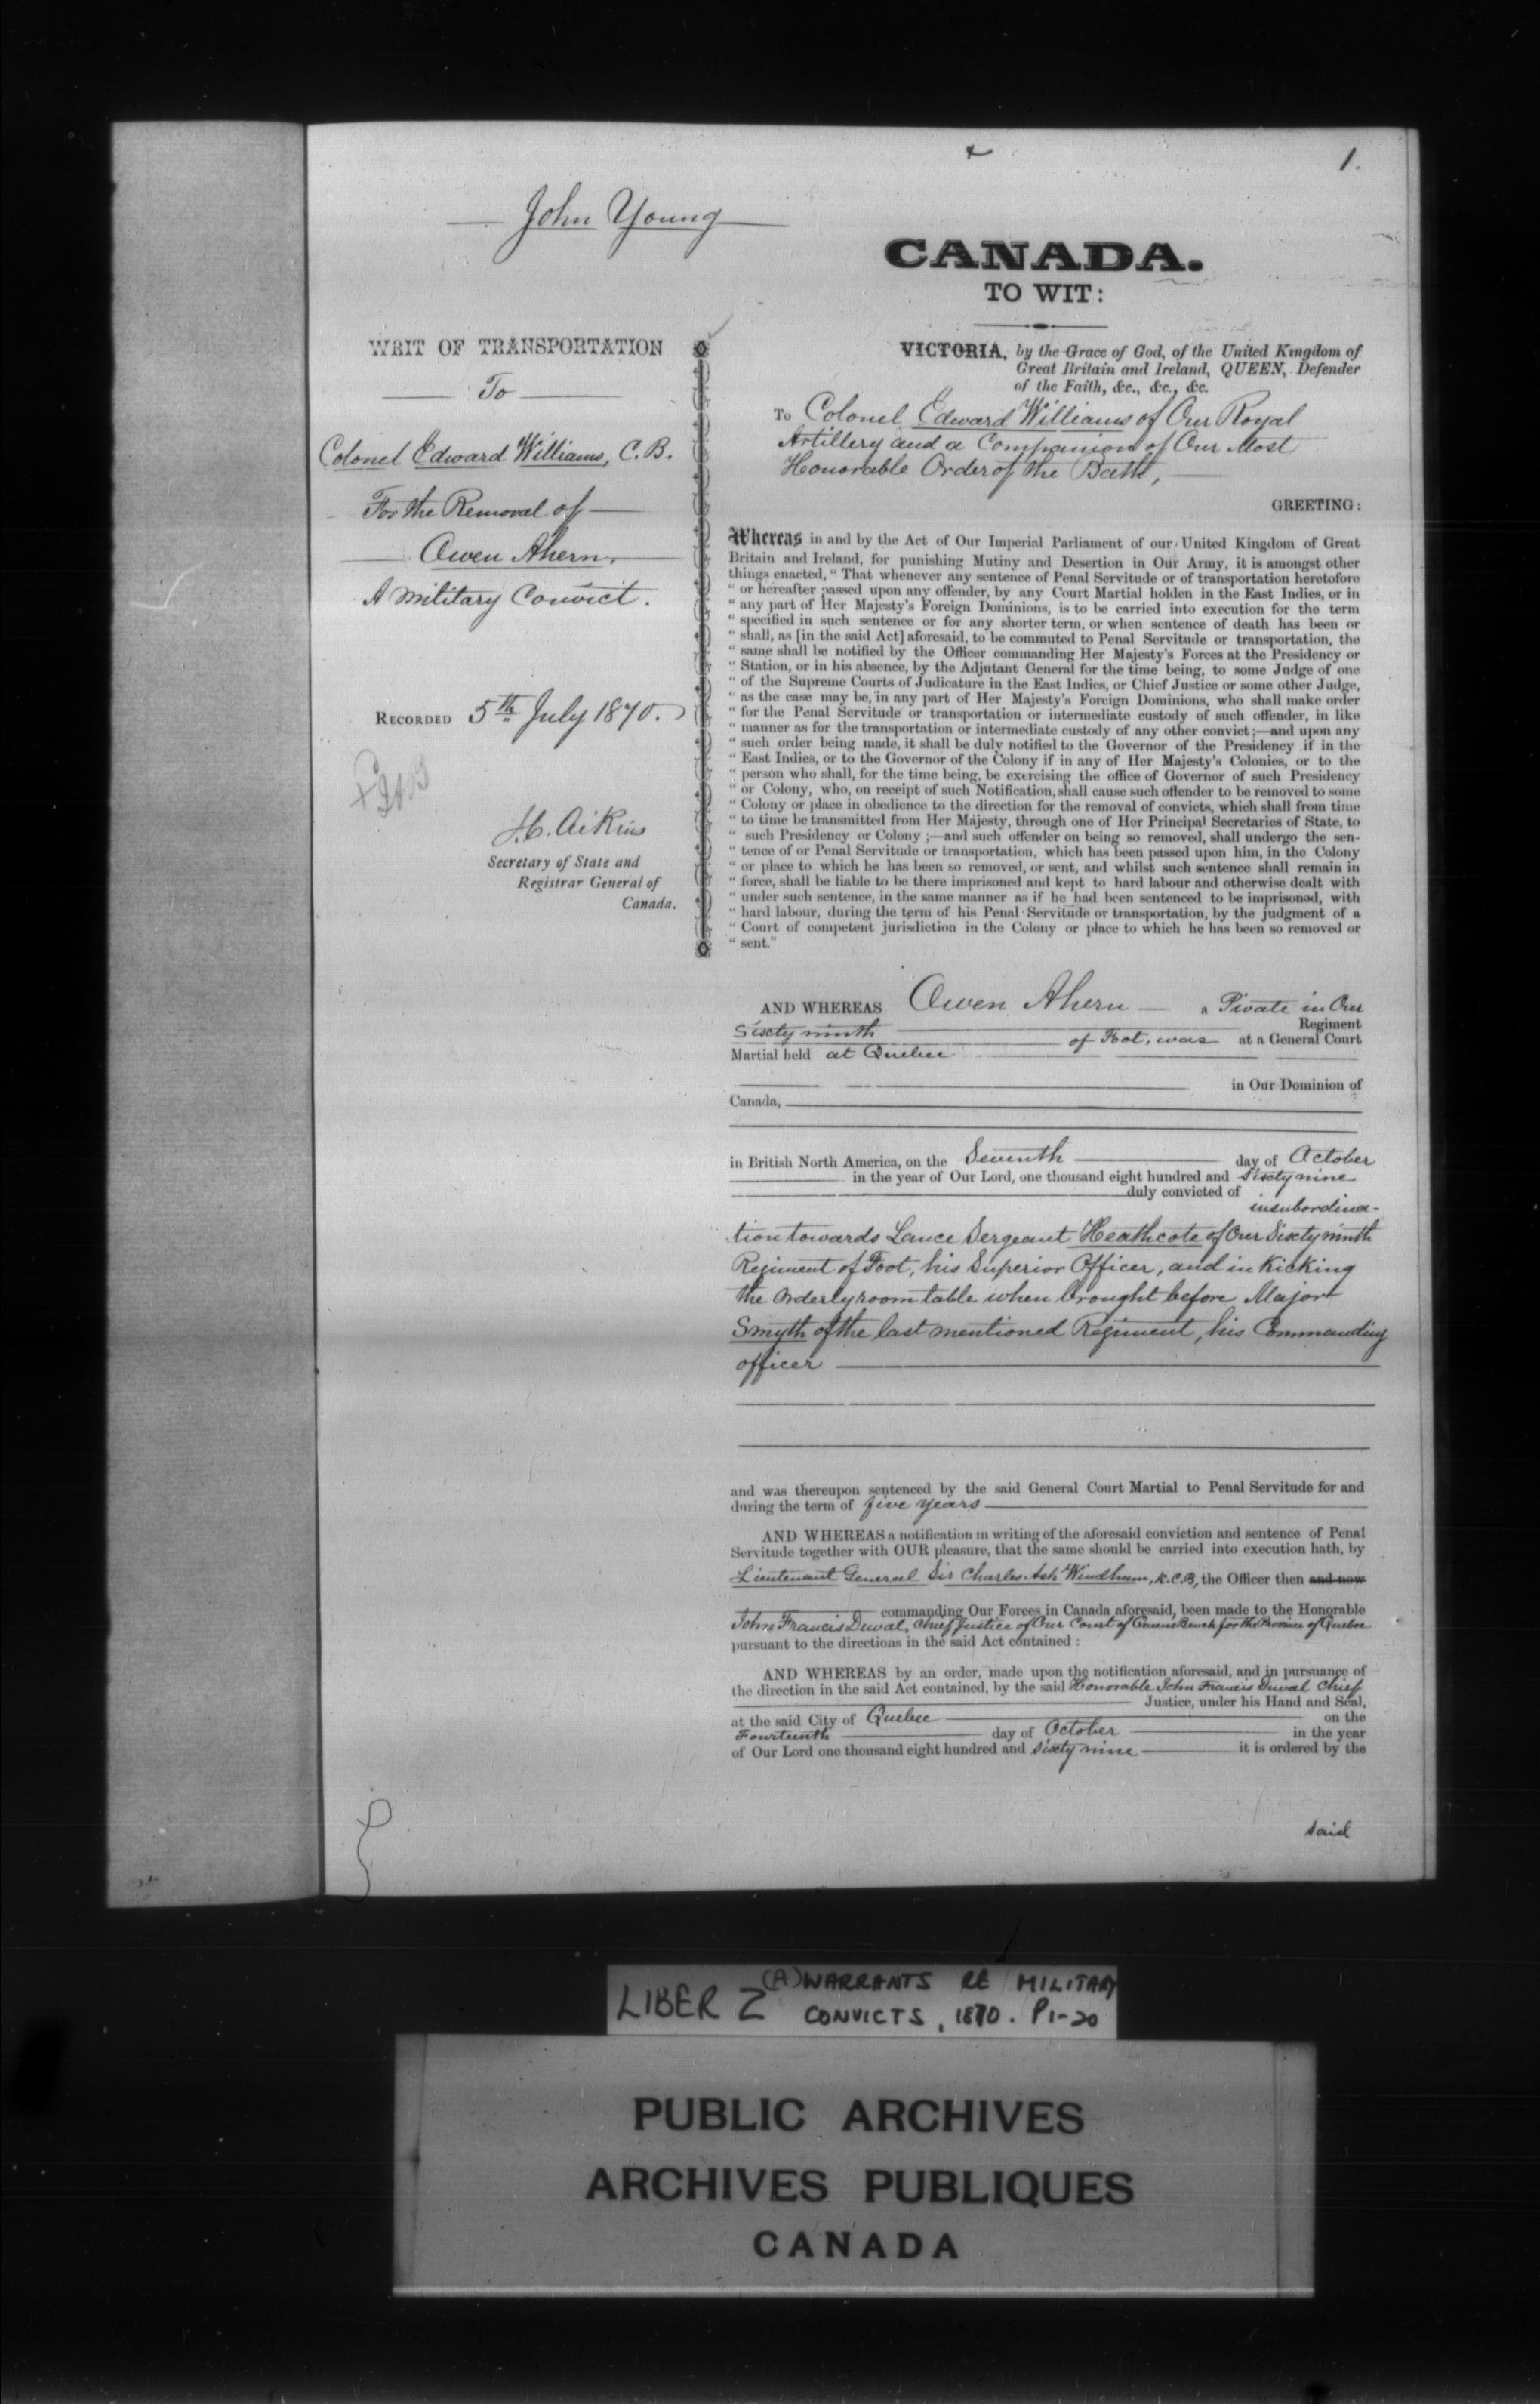 1.
John Young
CANADA.
TO WIT:
WRIT OF TRANSPORTATION
To
Colonel Edward Williams, C.B.
For the Removal of
Owen Ahern,
A Military Convict.
RECORDED 5th July 1870.
J.C. Aikins
Secretary of State and
Registrar General of
Canada.
VICTORIA, by the Grace of God, of the United Kingdom of
Great Britain and Ireland, QUEEN, Defender
of the Faith, &c., &c., &c.
To Colonel Edward Williams of Our Royal
Artillery and a Companion of Our Most
Honorable Order of the Bath,
GREETING:
Whereas in and by the Act of Our Imperial Parliament of our United Kingdom of Great
Britain and Ireland, for punishing Mutiny and Desertion in Our Army, it is amongst other
things enacted, "That whenever any sentence of Penal Servitude or of transportation heretofore
" or hereafter passed upon any offender, by any Court Martial holden in the East Indies, or in
" any part of Her Majesty's Foreign Dominions, is to be carried into execution for the term
" specified in such sentence or for any shorter term, or when sentence of death has been or
" shall, as [in the said Act] aforesaid, to be commuted to Penal Servitude or transportation, the
" same shall be notified by the Officer commanding Her Majesty's Forces at the Presidency or
" Station, or in his absence, by the Adjutant General for the time being, to some Judge of one
" of the Supreme Courts of Judicature in the East Indies, or Chief Justice or some other Judge,
" as the case may be, in any part of Her Majesty's Foreign Dominions, who shall make order
" for the Penal Servitude or transportation or intermediate custody of such offender, in like
" manner as for the transportation or intermediate custody of any other convict;—and upon any
" such order being made, it shall be duly notified to the Governor of the Presidency if in the
" East Indies, or to the Governor of the Colony if in any of Her Majesty's Colonies, or to the
" person who shall, for the time being, be exercising the office of Governor of such Presidency
" or Colony, who, on receipt of such Notification, shall cause such offender to be removed to some
" Colony or place in obedience to the direction for the removal of convicts, which shall from time
" to time be transmitted from Her Majesty, through one of Her Principal Secretaries of State, to
" such Presidency or Colony;—and such offender on being so removed, shall undergo the sen-
" tence of or Penal Servitude or transportation, which has been passed upon him, in the Colony
" or place to which he has been so removed, or sent, and whilst such sentence shall remain in
" force, shall be liable to be there imprisoned and kept to hard labour and otherwise dealt with
" under such sentence, in the same manner as if he had been sentenced to be imprisoned, with
" hard labour, during the term of his Penal Servitude or transportation, by the judgment of a
" Court of competent jurisdiction in the Colony or place to which he has been so removed or
" sent."
AND WHEREAS Owen Ahern a Private in Our
Sixty ninth Regiment
of Foot, was at a General Court
Martial held at Quebec
in Our Dominion of
Canada,
in British North America, on the Seventh day of October
in the year of Our Lord, one thousand eight hundred and Sixty nine
duly convicted of insubordina-
tion towards Lance Sergeant Heathcote of Our Sixty ninth
Regiment of Foot, his Superior Officer, and in Kicking
the Orderly room table when brought before Major
Smyth of the last mentioned Regiment, his Commanding
officer
and was thereupon sentenced by the said General Court Martial to Penal Servitude for and
during the term of five years
AND WHEREAS a notification in writing of the aforesaid conviction and sentence of Penal
Servitude together with OUR pleasure, that the same should be carried into execution hath, by
Lieutenant General Sir Charles Ash Windham, K.C.B, the Officer then and now
commanding Our Forces in Canada aforesaid, been made to the Honorable
John Francis Duval, Chief Justice of Our Court of Queens Bench for the Province of Quebec
pursuant to the directions in the said Act contained:
AND WHEREAS by an order, made upon the notification aforesaid, and in pursuance of
the direction in the said Act contained, by the said Honorable John Francis Duval Chief
Justice, under his Hand and Seal,
at the said City of Quebec on the
Fourteenth day of October in the year
of Our Lord one thousand eight hundred and sixty nine it is ordered by the
said
LIBER Z (A) WARRANTS RE MILITARY
CONVICTS, 1870. P1-20
PUBLIC ARCHIVES
ARCHIVES PUBLIQUES
CANADA